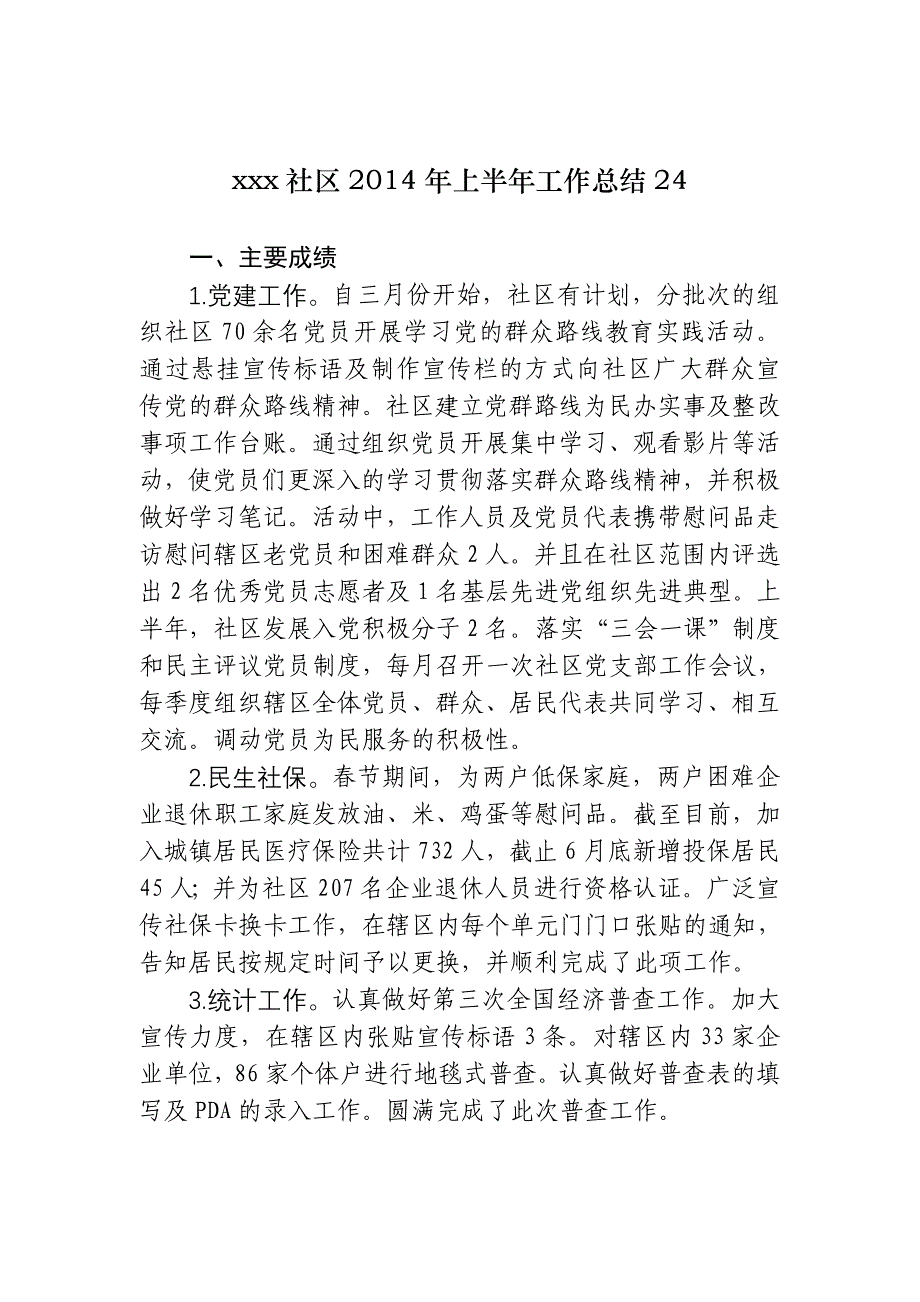 xxx 社区 2014 年上半年工作总结 24
一、主要成绩
1.党建工作。自三月份开始，社区有计划，分批次的组
织社区 70 余名党员开展学习党的群众路线教育实践活动。
通过悬挂宣传标语及制作宣传栏的方式向社区广大群众宣
传党的群众路线精神。社区建立党群路线为民办实事及整改
事项工作台账。通过组织党员开展集中学习、观看影片等活
动，使党员们更深入的学习贯彻落实群众路线精神，并积极
做好学习笔记。活动中，工作人员及党员代表携带慰问品走
访慰问辖区老党员和困难群众 2 人。并且在社区范围内评选
出 2 名优秀党员志愿者及 1 名基层先进党组织先进典型。上
半年，社区发展入党积极分子 2 名。落实“三会一课”制度
和民主评议党员制度，每月召开一次社区党支部工作会议，
每季度组织辖区全体党员、群众、居民代表共同学习、相互
交流。调动党员为民服务的积极性。
2.民生社保。春节期间，为两户低保家庭，两户困难企
业退休职工家庭发放油、米、鸡蛋等慰问品。截至目前，加
入城镇居民医疗保险共计 732 人，截止 6 月底新增投保居民
45 人；并为社区 207 名企业退休人员进行资格认证。广泛宣
传社保卡换卡工作，在辖区内每个单元门门口张贴的通知，
告知居民按规定时间予以更换，并顺利完成了此项工作。
3.统计工作。认真做好第三次全国经济普查工作。加大
宣传力度，在辖区内张贴宣传标语 3 条。对辖区内 33 家企
业单位，86 家个体户进行地毯式普查。认真做好普查表的填
写及 PDA 的录入工作。圆满完成了此次普查工作。